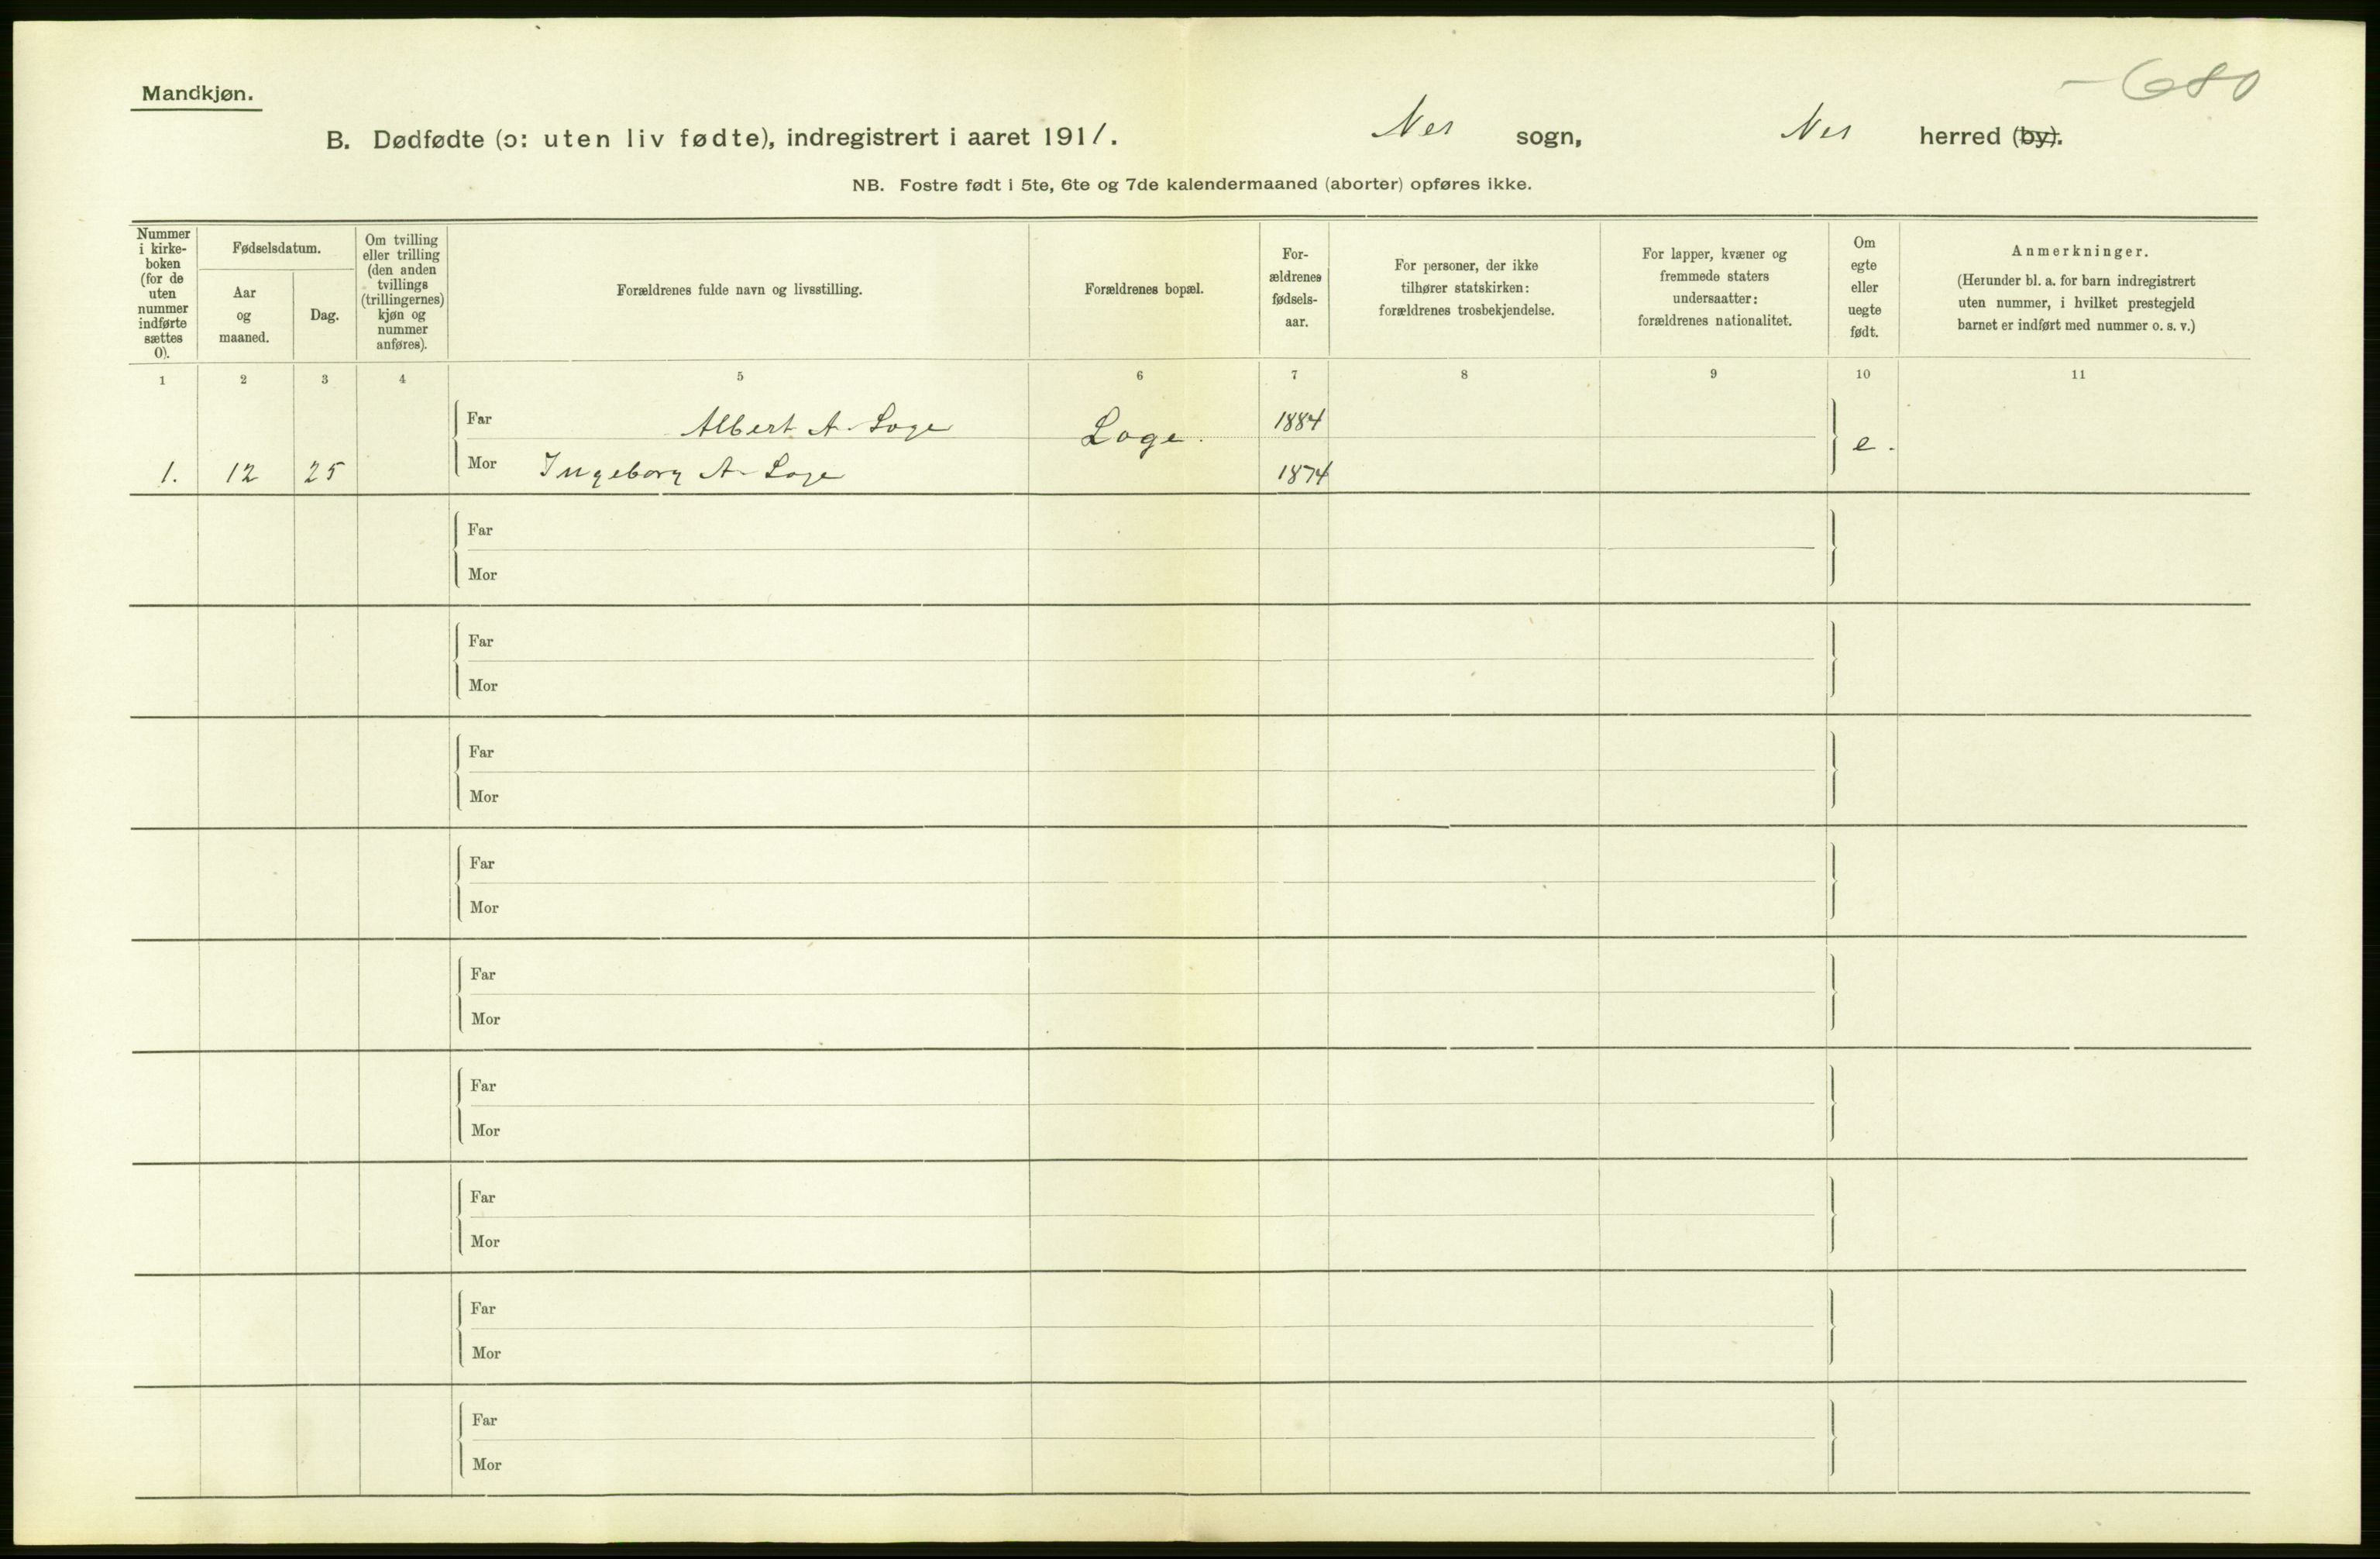 Mandkjøn.
- 680
B. Dødfødte (ɔ: uten liv fødte), indregistrert i aaret 1911. Nes sogn, Nes herred (by).
NB. Fostre født i 5te, 6te og 7de kalendermaaned (aborter) opføres ikke.
Nummer
i kirke-
boken
(for de
uten
nummer
indførte
sættes
0).
Fødselsdatum.
Aar
og
maaned.
Dag.
Om tvilling
eller trilling
(den anden
tvillings
(trillingernes)
kjøn og
nummer
anføres).
Forældrenes fulde navn og livsstilling.
Forældrenes bopæl.
For-
ældrenes
fødsels-
aar.
For personer, der ikke
tilhører statskirken:
forældrenes trosbekjendelse.
For lapper, kvæner og
fremmede staters
undersaatter:
forældrenes nationalitet.
Om
egte
eller
uegte
født.
Anmerkninger.
(Herunder bl. a. for barn indregistrert
uten nummer, i hvilket prestegjeld
barnet er indført med nummer o. s. v.)
1 2 3 4 5 6 7 8 9 10 11
Far Albert A. Loge Loge. 1884 e.
1. 12 25 Mor Ingeborg A. Loge 1874
Far
Mor
Far
Mor
Far
Mor
Far
Mor
Far
Mor
Far
Mor
Far
Mor
Far
Mor
Far
Mor